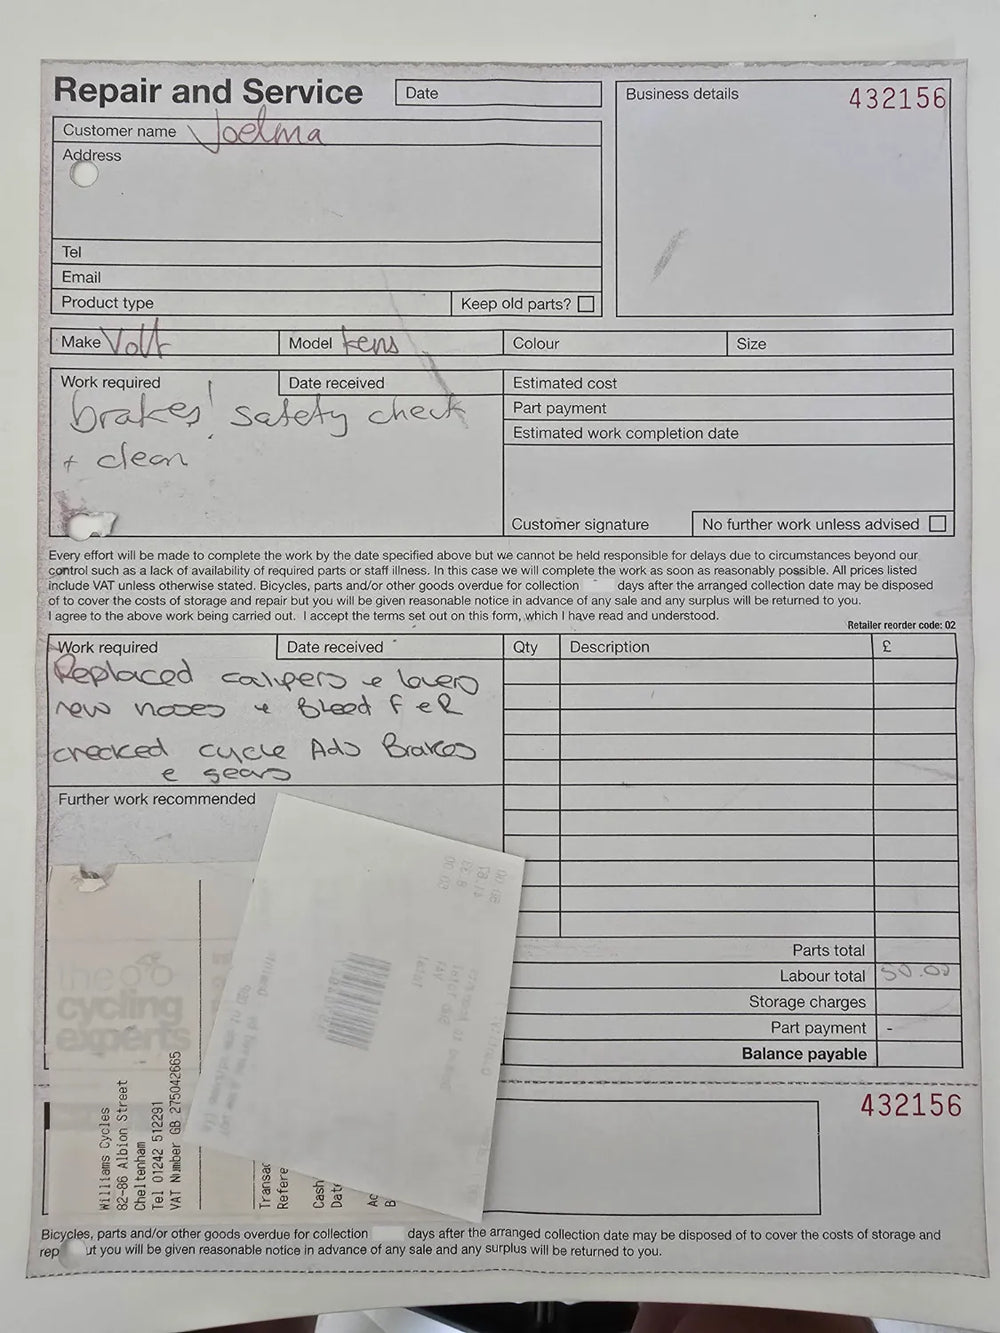 Repair and Service
Date
Business details
432156
Customer name Joelma
Address
Tel
Email
Product type
Keep old parts?
Make Volt
Model kens
Colour
Size
Work required
Date received
brakes! safety check
+ clean
Estimated cost
Part payment
Estimated work completion date
Customer signature
No further work unless advised
Every effort will be made to complete the work by the date specified above but we cannot be held responsible for delays due to circumstances beyond our
control such as a lack of availability of required parts or staff illness. In this case we will complete the work as soon as reasonably possible. All prices listed
include VAT unless otherwise stated. Bicycles, parts and/or other goods overdue for collection days after the arranged collection date may be disposed
of to cover the costs of storage and repair but you will be given reasonable notice in advance of any sale and any surplus will be returned to you.
I agree to the above work being carried out. I accept the terms set out on this form, which I have read and understood.
Retailer reorder code: 02
Work required
Date received
Replaced calipers e levers
new hoses e Bleed F e R
checked cycle Ads Brakes
e gears
Further work recommended
Qty
Description
£
Parts total
Labour total 50.00
Storage charges
Part payment -
Balance payable
the
cycling
experts
Williams Cycles
82-86 Albion Street
Cheltenham
Tel 01242 512291
VAT Number GB 275042665
Transac
Refere
Cash
Dat
Ac
B
432156
Bicycles, parts and/or other goods overdue for collection days after the arranged collection date may be disposed of to cover the costs of storage and
rep ut you will be given reasonable notice in advance of any sale and any surplus will be returned to you.